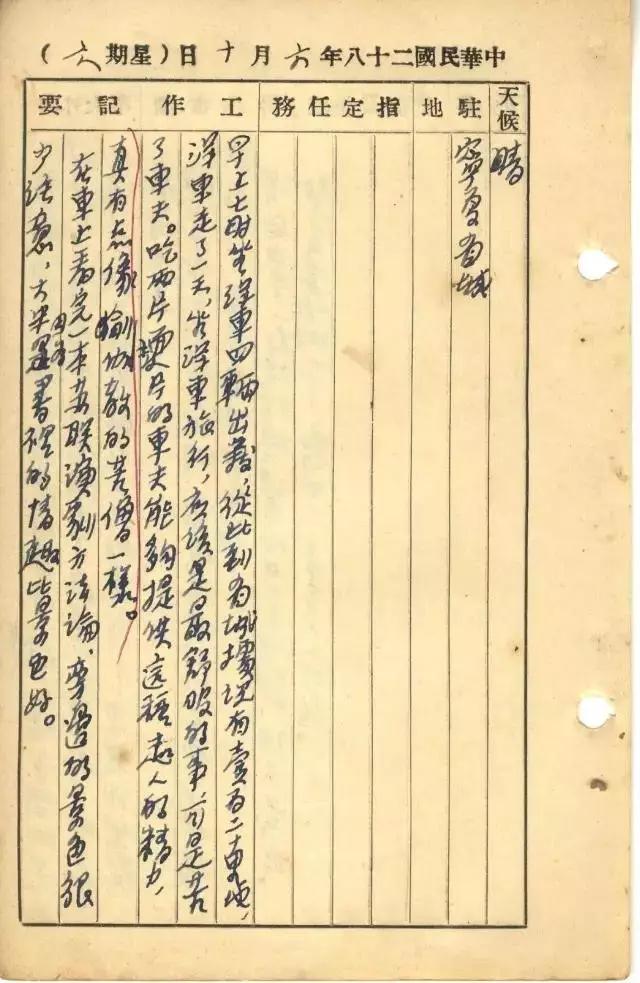 中華民國二十八年六月十日（星期六）
天候
晴
駐地
寧夏省城
指定任務
工作記要
早上七時坐洋車四輛出發，從此到省城據說有壹百二十里地，
洋車走了一天，坐洋車旅行，應該是最舒服的事，可是苦
了車夫。吃兩片麵
片的車夫能夠提供這種超人的精力，
真有點像瑜伽教的苦僧一樣。
在車上看完一本蘇联演劇方法論，旁邊的景色很
少注意，大半
是書裡的情趣比景色好。